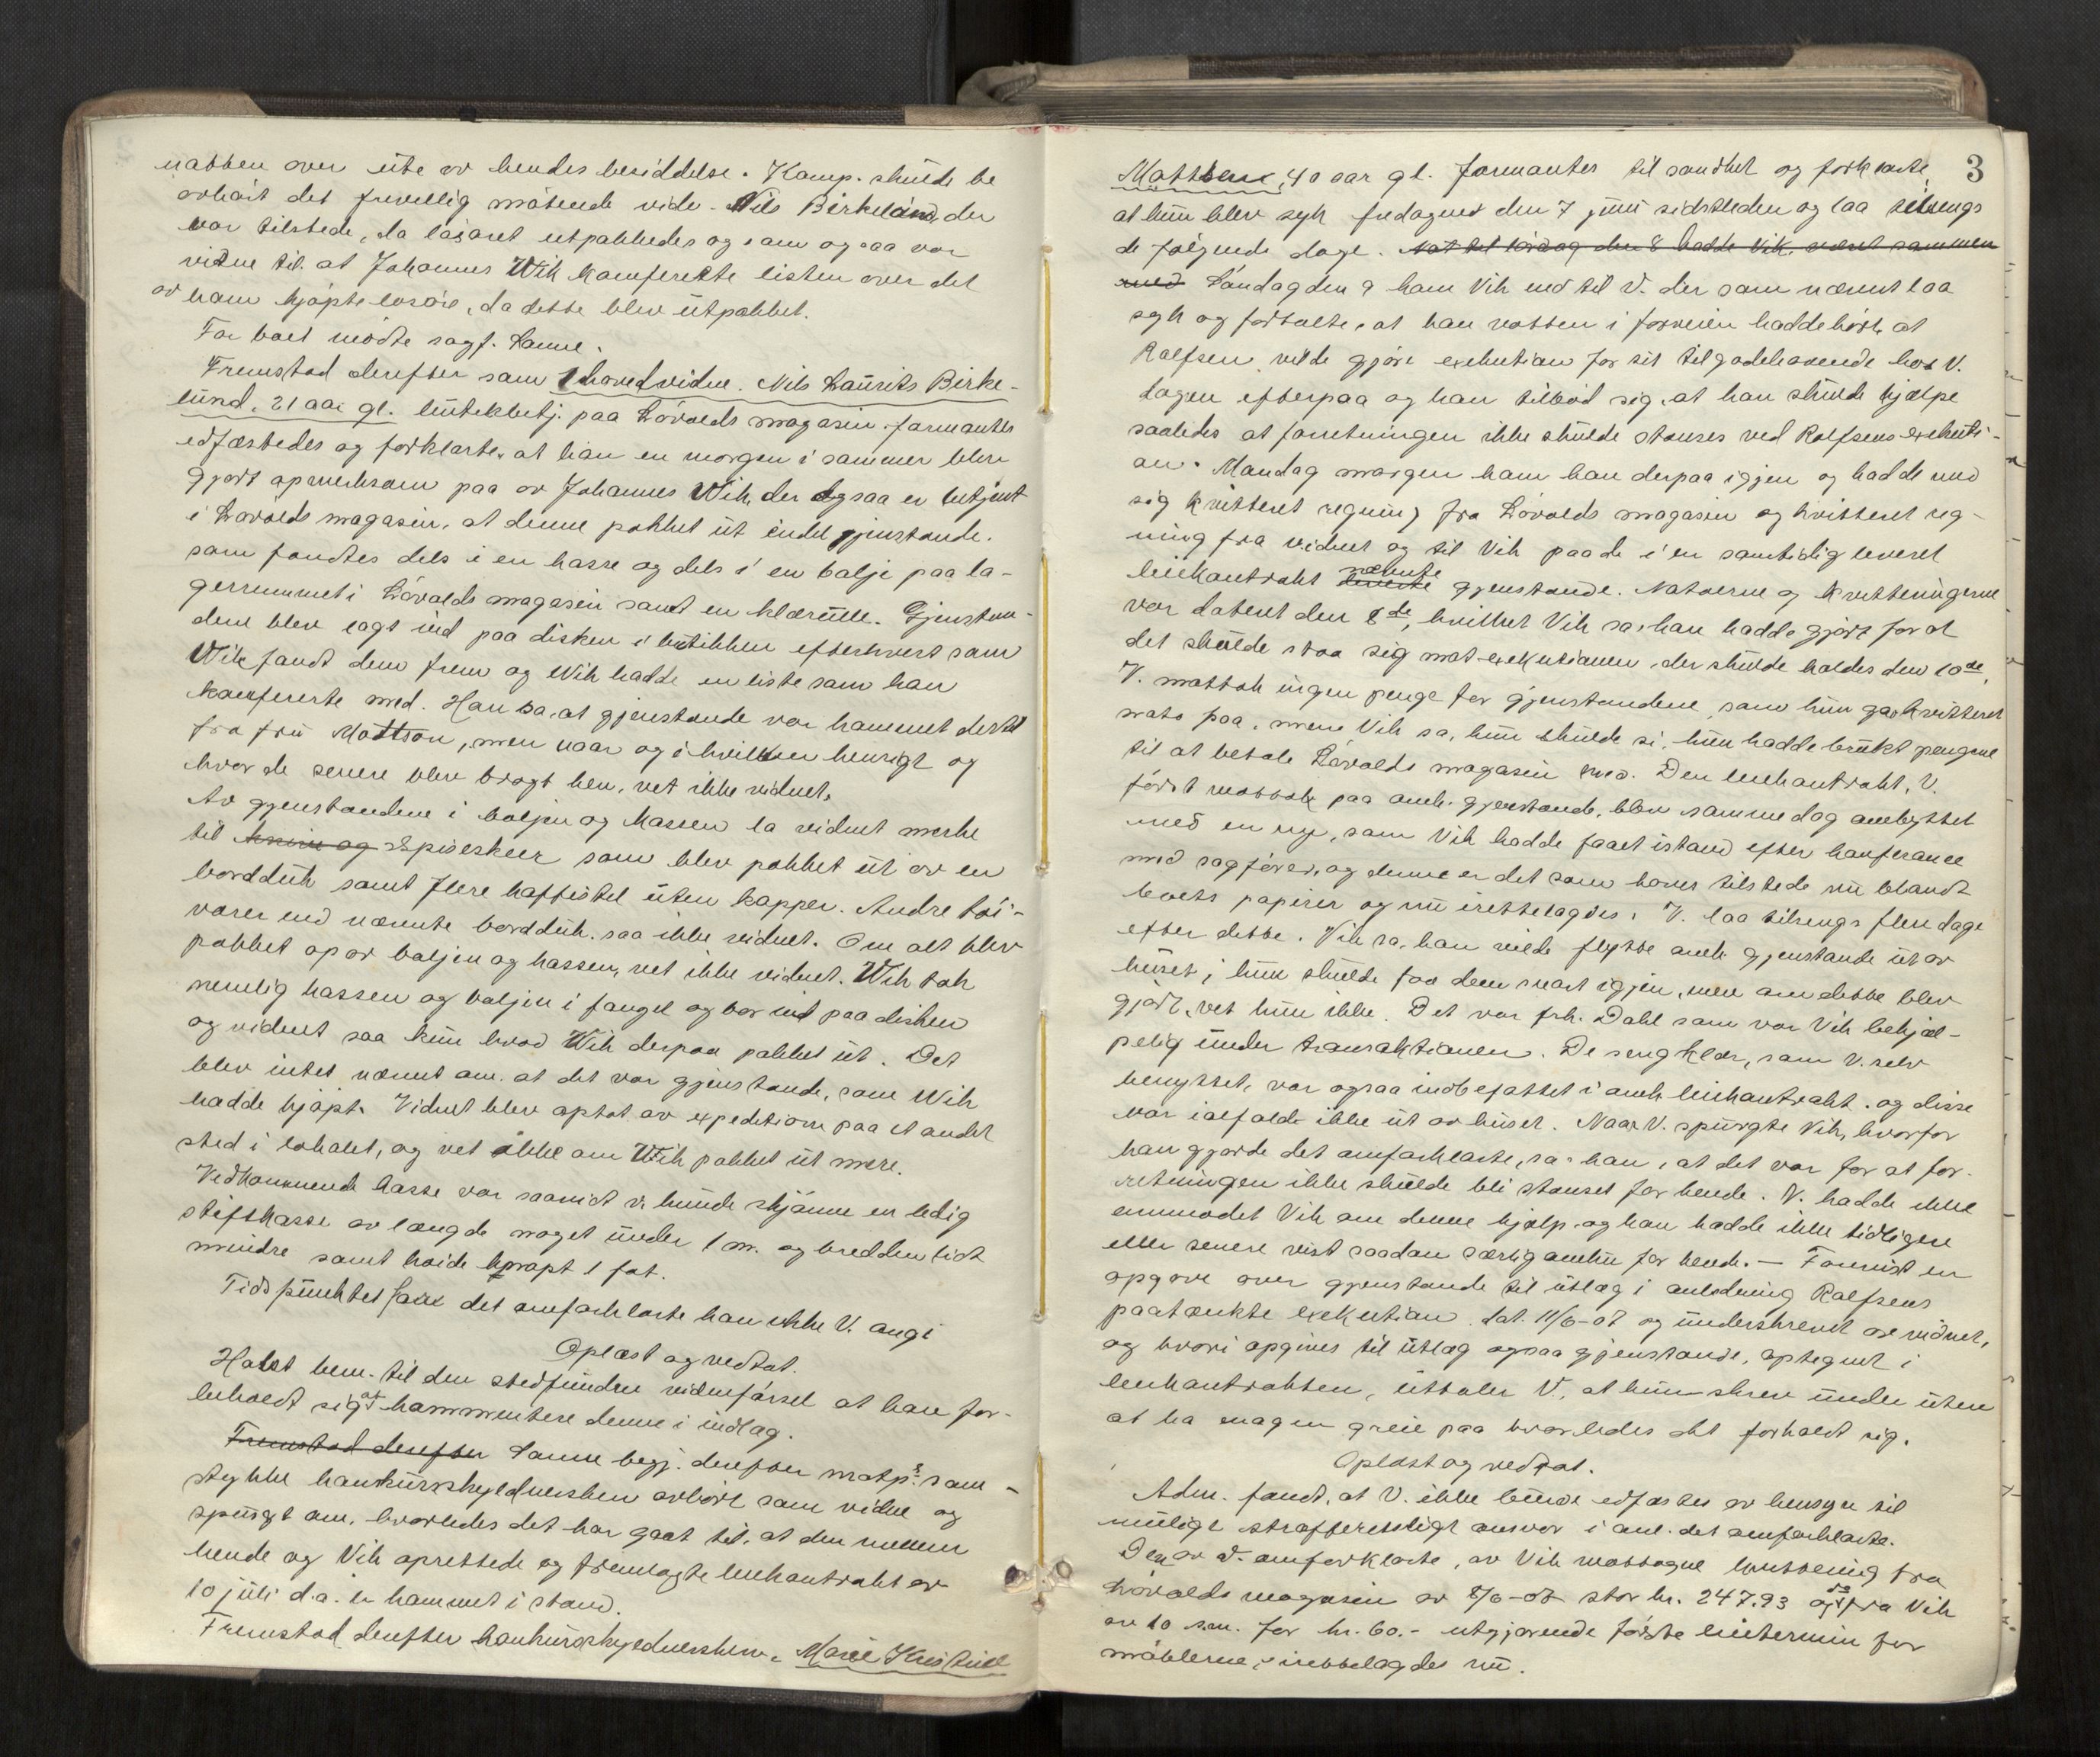 natten over ute av hendes besiddelse. Komp. skulde be
avhørt det frivillig møtende vidn. Nils Birkelund, der
var tilstede, da løsøret utpakkedes og som ogsaa var
vidne til at Johannes Wik konfererte listen over det
av ham kjøpte løsøre, da dette blev utpakket.
For boet møtte sagf. Lanne.
Fremstod derefter som 1 hovedvidne. Nils Laurits Birke-
lund. 21 aar gl. butikbetj. paa Løvolds magasin formantes
edfæstedes og forklarte, at han en morgen i sommer blev
gjort opmerksom paa av Johannes Wik, der ogsaa er betjent
i Løvolds magasin, at denne pakket ut endel gjenstande.
som fandtes dels i en kasse og dels i en balje paa la-
gerrummet i Løvolds magasin samt en klærulle. Gjenstan-
dene blev lagt ind paa disken i butikken efterhvert som
Wik fandt dem frem og Wik hadde en liste som han
konfererte med. Han sa, at gjenstande var kommet dertil
fra fru Mattson, men naar og i hvilken hensigt og
hvor de senere blev bragt hen, vet ikke vidnet.
Av gjenstandene i baljen og kassen la vidnet merke
til knive og spiseskeer som blev pakket ut av en
bordduk samt flere kaffistel uten kopper. Andre tøi-
varer end nævnte bordduk. saa ikke vidnet. Om alt blev
pakket op av baljen og kassen, vet ikke vidnet. Wik tok
nemlig kassen og baljen i fanget og bar ind paa disken
og vidnet saa kun hvad Wik derpaa pakket ut. Det
blev intet nævnt om. at det var gjenstande, som Wik
hadde kjøpt. Vidnet blev optat av expedition paa et andet
sted i lokalet, og vet ikke om Wik pakket ut mere.
Vedkommende kasse var saavidt v. kunde skjønne en ledig
stiftkasse av længde noget under 1 m. og bredden lidt
mindre samt høide knapt 1 fot.
Tidspunktet for det omforklarte kan ikke V. angi
Oplæst og vedtat.
Holst bem. til den stedfundne vidneførsel at han for-
beholdt sig at kommentere denne i indlæg.
Fremstod derefter Lanne begj. derefter motp.s sam-
stykke konkursskyldnersken avhørt som vidne og
spurgt om, hvorledes det har gaat til, at den mellem
hende og Vik oprettede og fremlagte leiekontrakt av
10 juli d.a. er kommet i stand.
Fremstod derefter konkursskyldnersken. Marie Kristine
3
Mattson, 40 aar gl. formantes til sandhet og forklarte,
at hun blev syk fredagen den 7 juni sidstleden og laa tilsengs
de følgende dage. Nat til lørdag den 8 hadde Vik, været sammen
med Søndag den 9 kom Vik ned til V. der som nævnt laa
syk og fortalte, at han natten i forveien hadde hørt, at
Rolfsen vilde gjøre exekution for sit tilgodehavende hos V.
dagen efterpaa og han tilbød sig, at han skulde hjælpe
saaledes at forretningen ikke skulde stanses ved Rolfsens exekuti-
on. Mandag morgen kom han derpaa igjen og hadde med
sig kvitteret regning fra Løvolds magasin og kvitteret reg-
ning fra vidnet og til Vik paa de i en samtidig leveret
leiekontrakt nævnte gjenstande. Notaerne og kvitteringerne
var dateret den 8de, hvilket Vik sa, han hadde gjort for at
det skulde staa sig mot exekutionen, der skulde holdes den 10de.
V. mottok ingen penge for gjenstandene, som hun gav kvitteret
nota paa, men Vik sa, hun skulde si, hun hadde brukt pengene
til at betale Løvolds magasin med. Den leiekontrakt, V.
først mottok paa omh. gjenstande, blev samme dag ombyttet
med en ny, som Vik hadde faaet istand efter konferance
med sagfører, og denne er det som haves tilstede nu blandt
boets papirer og nu irettelagdes. V. laa tilsengs flere dage
efter dette. Vik sa, han vilde flytte omh. gjenstande ut av
huset; hun skulde faa dem snart igjen, men om dette blev
gjort, vet hun ikke. Det var frk. Dahl som var Vik behjæl-
pelig under transaktionen. De sengklær, som V. selv
benyttet, var ogsaa indbefattet i omh. leiekontrakt. og disse
var ialfald ikke ut av huset. Naar V. spurgte Vik, hvorfor
han gjorde det omforklarte, sa han, at det var for at for-
retningen ikke skulde bli stanset for hende. V. hadde ikke
anmodet Vik om denne hjælp. og han hadde ikke tidligere
eller senere vist saadan særlig omhu for hende. — Forevist en
opgave over gjenstande til utlæg i anledning Rolfsens
paatænkte exekution dat. 11/6-07 og underskrevet av vidnet,
og hvori opgives til utlæg ogsaa gjenstande, optegnet i
leiekontrakten, uttaler V, at hun skrev under uten
at ha nogen greie paa hvorledes det forholdt sig.
Oplæst og vedtat.
Adm. fandt, at V. ikke burde edfæstes av hensyn til
muligt strafferetsligt ansvar i anl. det omforklarte.
Den av V. omforklarte, av Vik mottagne kvittering fra
Løvolds magasin av 8/6-07 stor kr. 247.93 og fra Vik
av 10 s.m. for kr. 60.- utgjørende første leietermin for
møblerne, irettelagdes nu.